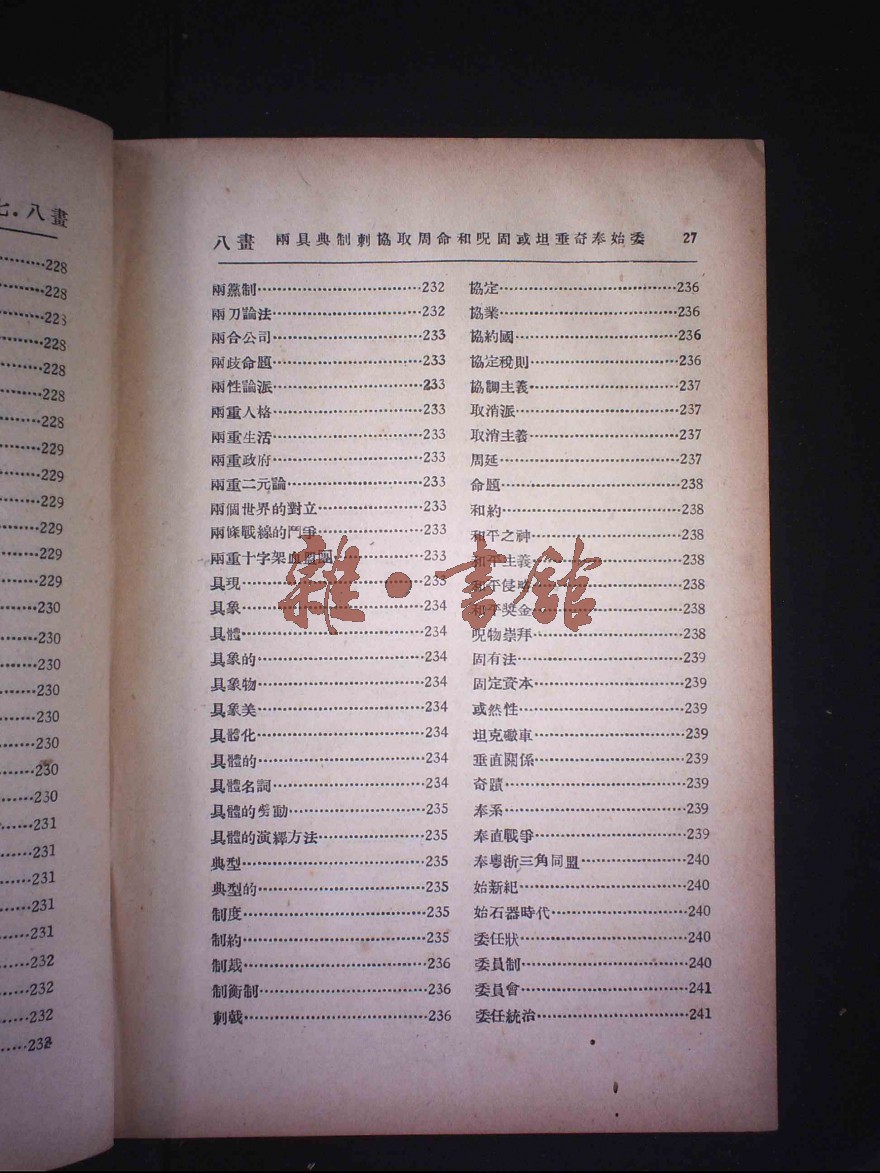 七·八畫
228
228
223
228
228
228
228
229
229
229
229
229
229
230
230
230
230
230
230
230
231
231
231
231
231
232
232
232
232
八畫 兩具典制刺協取周命和呪固或坦垂奇奉始委 27
兩黨制……232
兩刀論法……232
兩合公司……233
兩歧命題……233
兩性論派……233
兩重人格……233
兩重生活……233
兩重政府……233
兩重二元論……233
兩個世界的對立……233
兩條戰線的鬥爭……233
兩重十字架血盟團……233
具現……233
具象……234
具體……234
具象的……234
具象物……234
具象美……234
具體化……234
具體的……234
具體名詞……234
具體的勞動……235
具體的演繹方法……235
典型……235
典型的……235
制度……235
制約……235
制裁……236
制衡制……236
刺戟……236
協定……236
協業……236
協約國……236
協定稅則……236
協調主義……237
取消派……237
取消主義……237
周延……237
命題……238
和約……238
和平之神……238
和平主義……238
和平侵略……238
和平獎金……238
呪物崇拜……238
固有法……239
固定資本……239
或然性……239
坦克礮車……239
垂直關係……239
奇蹟……239
奉系……239
奉直戰爭……239
奉粵浙三角同盟……240
始新紀……240
始石器時代……240
委任狀……240
委員制……240
委員會……241
委任統治……241
雜·書館